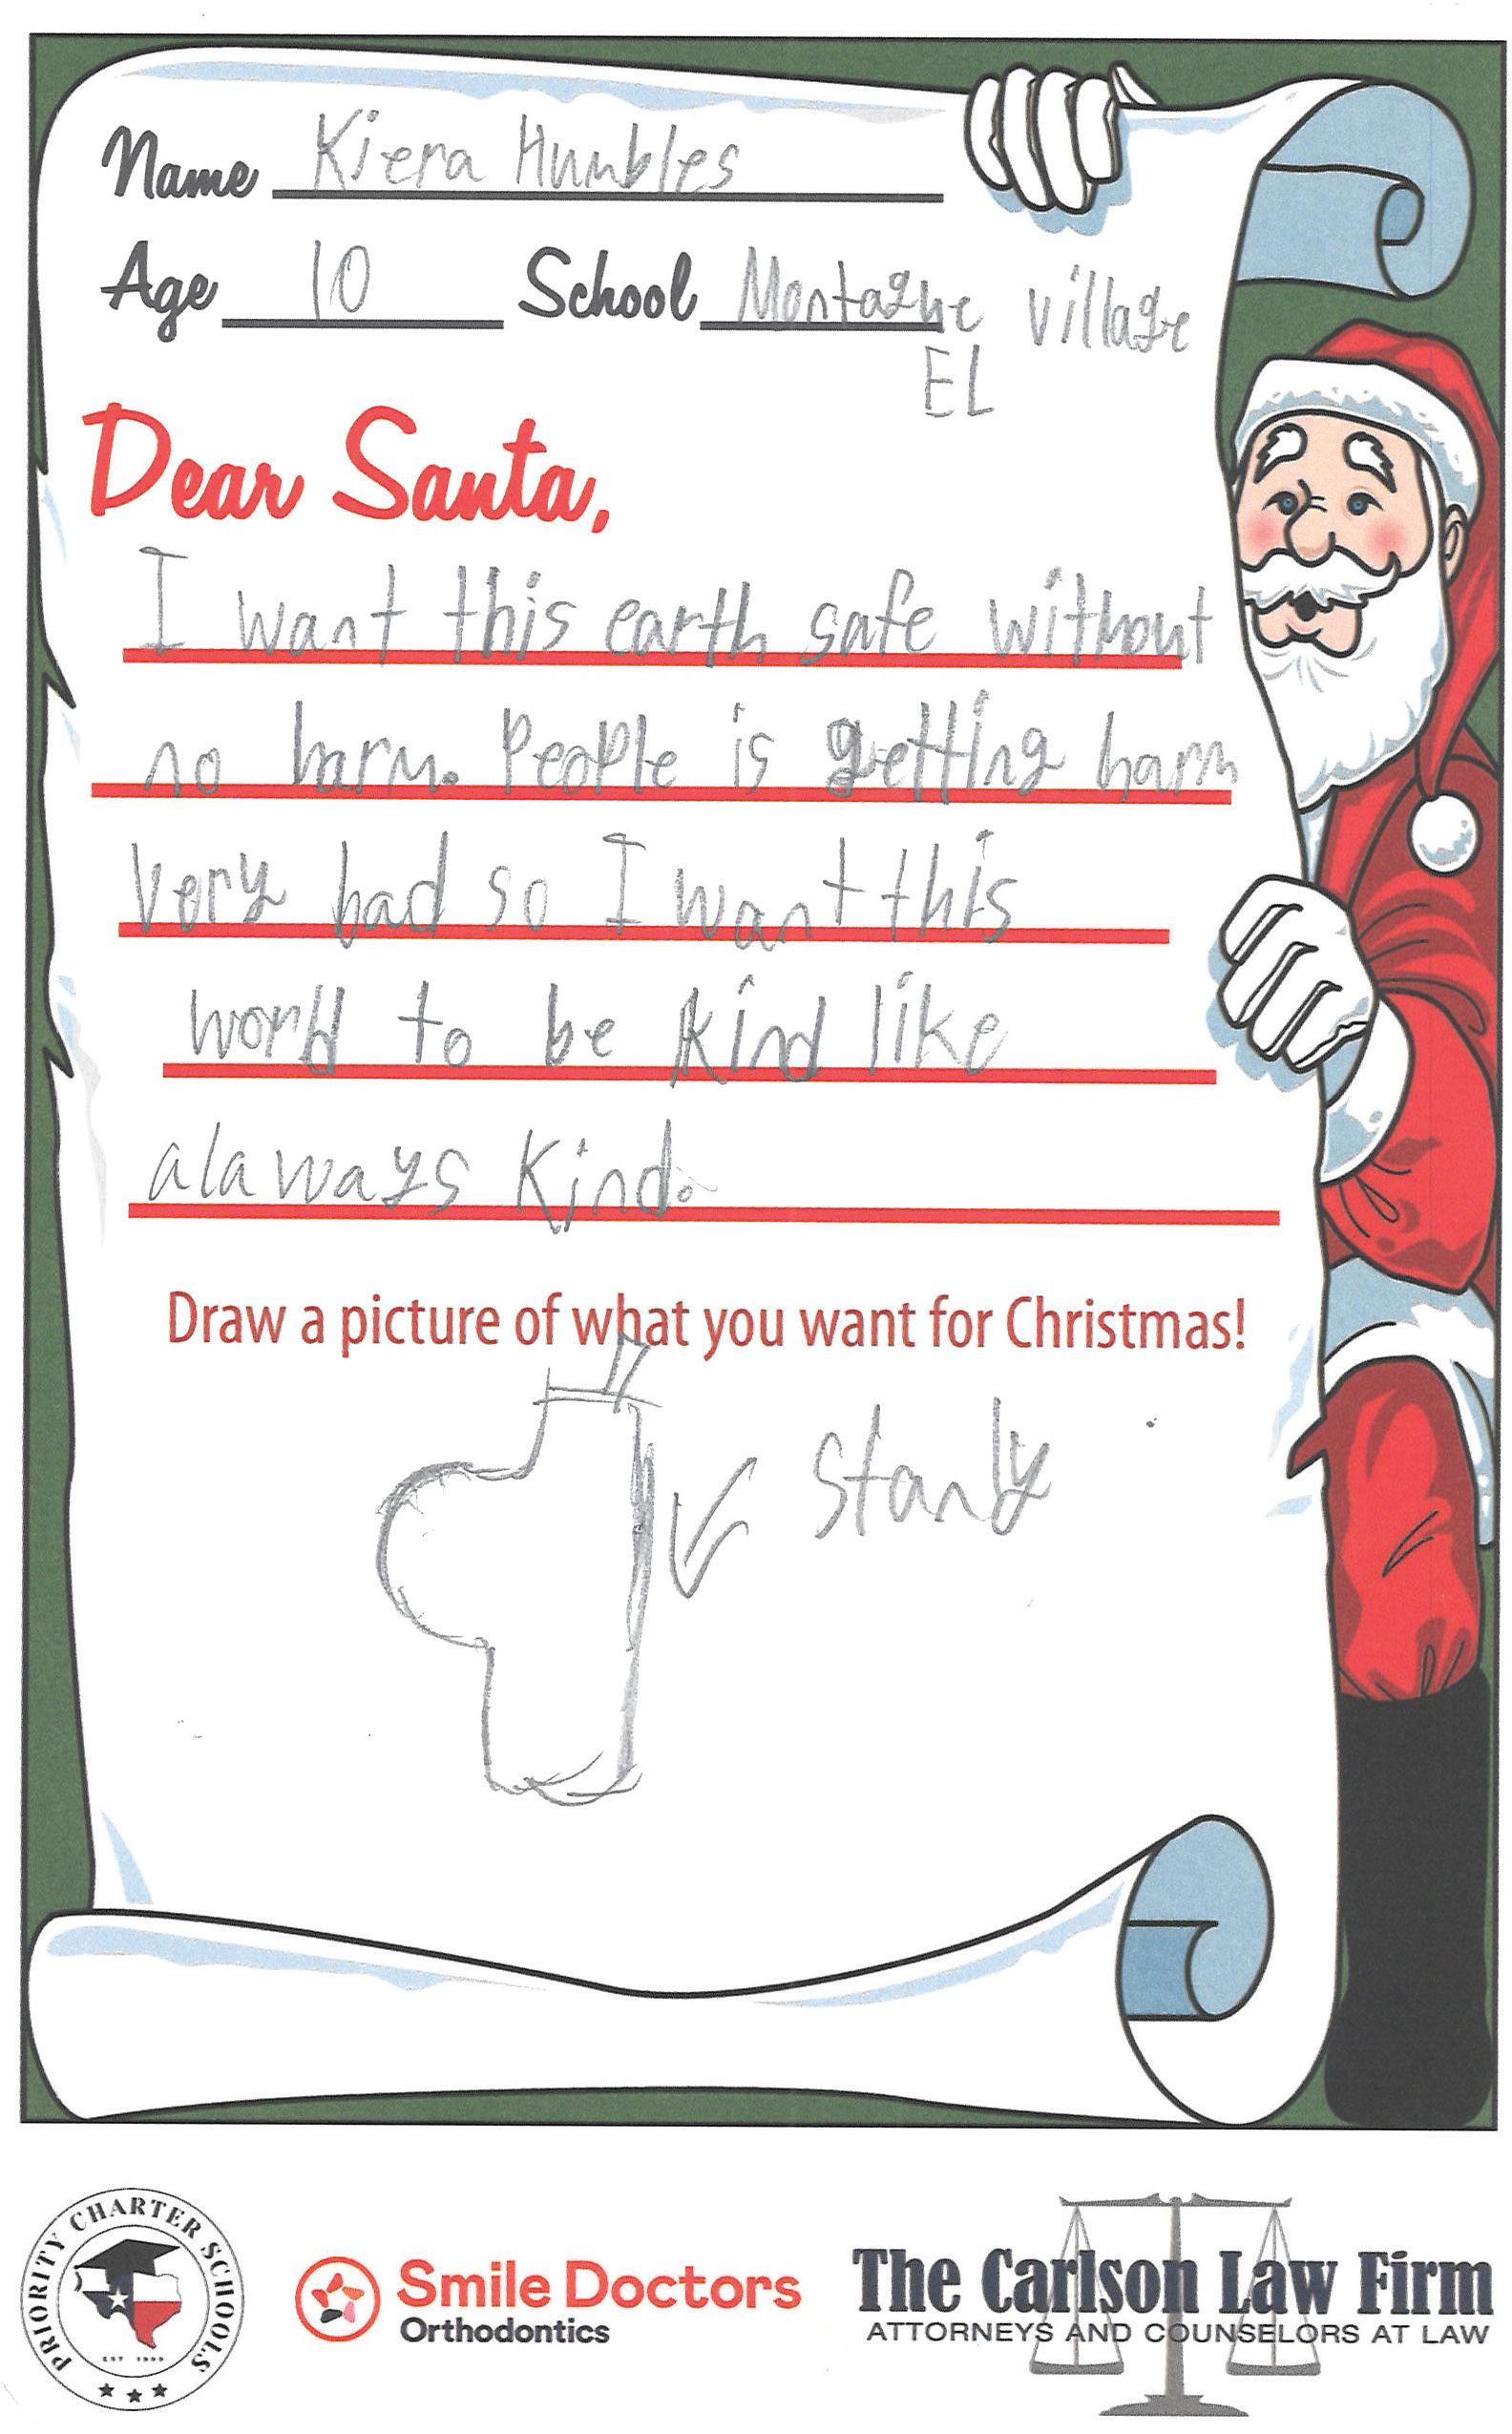 Name Kiera Humbles
Age 10 School Montague Village
EL
Dear Santa,
I want this earth safe without
no harm. People is getting harm
very bad so I want this
world to be kind like
alaways kind.
Draw a picture of what you want for Christmas!
Stanly
PRIORITY CHARTER SCHOOLS
EST 1999
Smile Doctors
Orthodontics
The Carlson Law Firm
ATTORNEYS AND COUNSELORS AT LAW